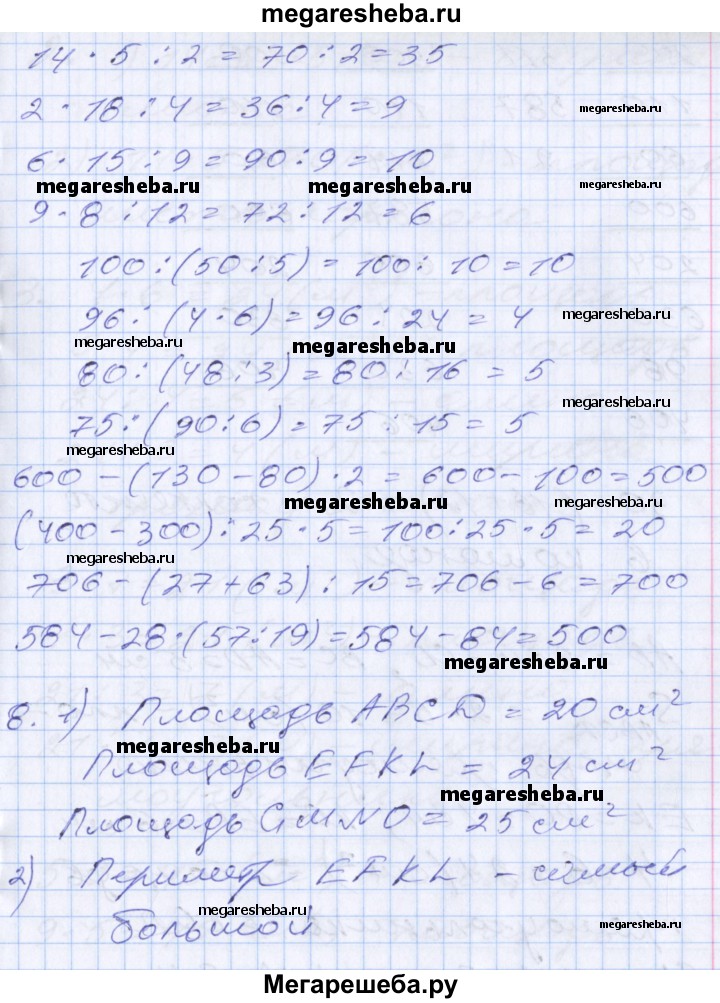 megaresheba.ru
14 · 5 : 2 = 70 : 2 = 35
2 · 18 : 4 = 36 : 4 = 9
megaresheba.ru
6 · 15 : 9 = 90 : 9 = 10
megaresheba.ru megaresheba.ru megaresheba.ru
9 · 8 : 12 = 72 : 12 = 6
100 : (50 : 5) = 100 : 10 = 10
96 : (4 · 6) = 96 : 24 = 4
megaresheba.ru
megaresheba.ru
80 : (48 : 3) = 80 : 16 = 5
megaresheba.ru
75 : (90 : 6) = 75 : 15 = 5
megaresheba.ru
600 - (130 - 80) · 2 = 600 - 100 = 500
megaresheba.ru megaresheba.ru
(400 - 300) : 25 · 5 = 100 : 25 · 5 = 20
megaresheba.ru
706 - (27 + 63) : 15 = 706 - 6 = 700
584 - 28 · (57 : 19) = 584 - 84 = 500
megaresheba.ru
8. 1) Площадь ABCD = 20 см²
megaresheba.ru
Площадь EFKL = 24 см²
megaresheba.ru
Площадь GMNO = 25 см²
2) Периметр EFKL - самый
megaresheba.ru
большой
megaresheba.ru
Мегарешеба.ру